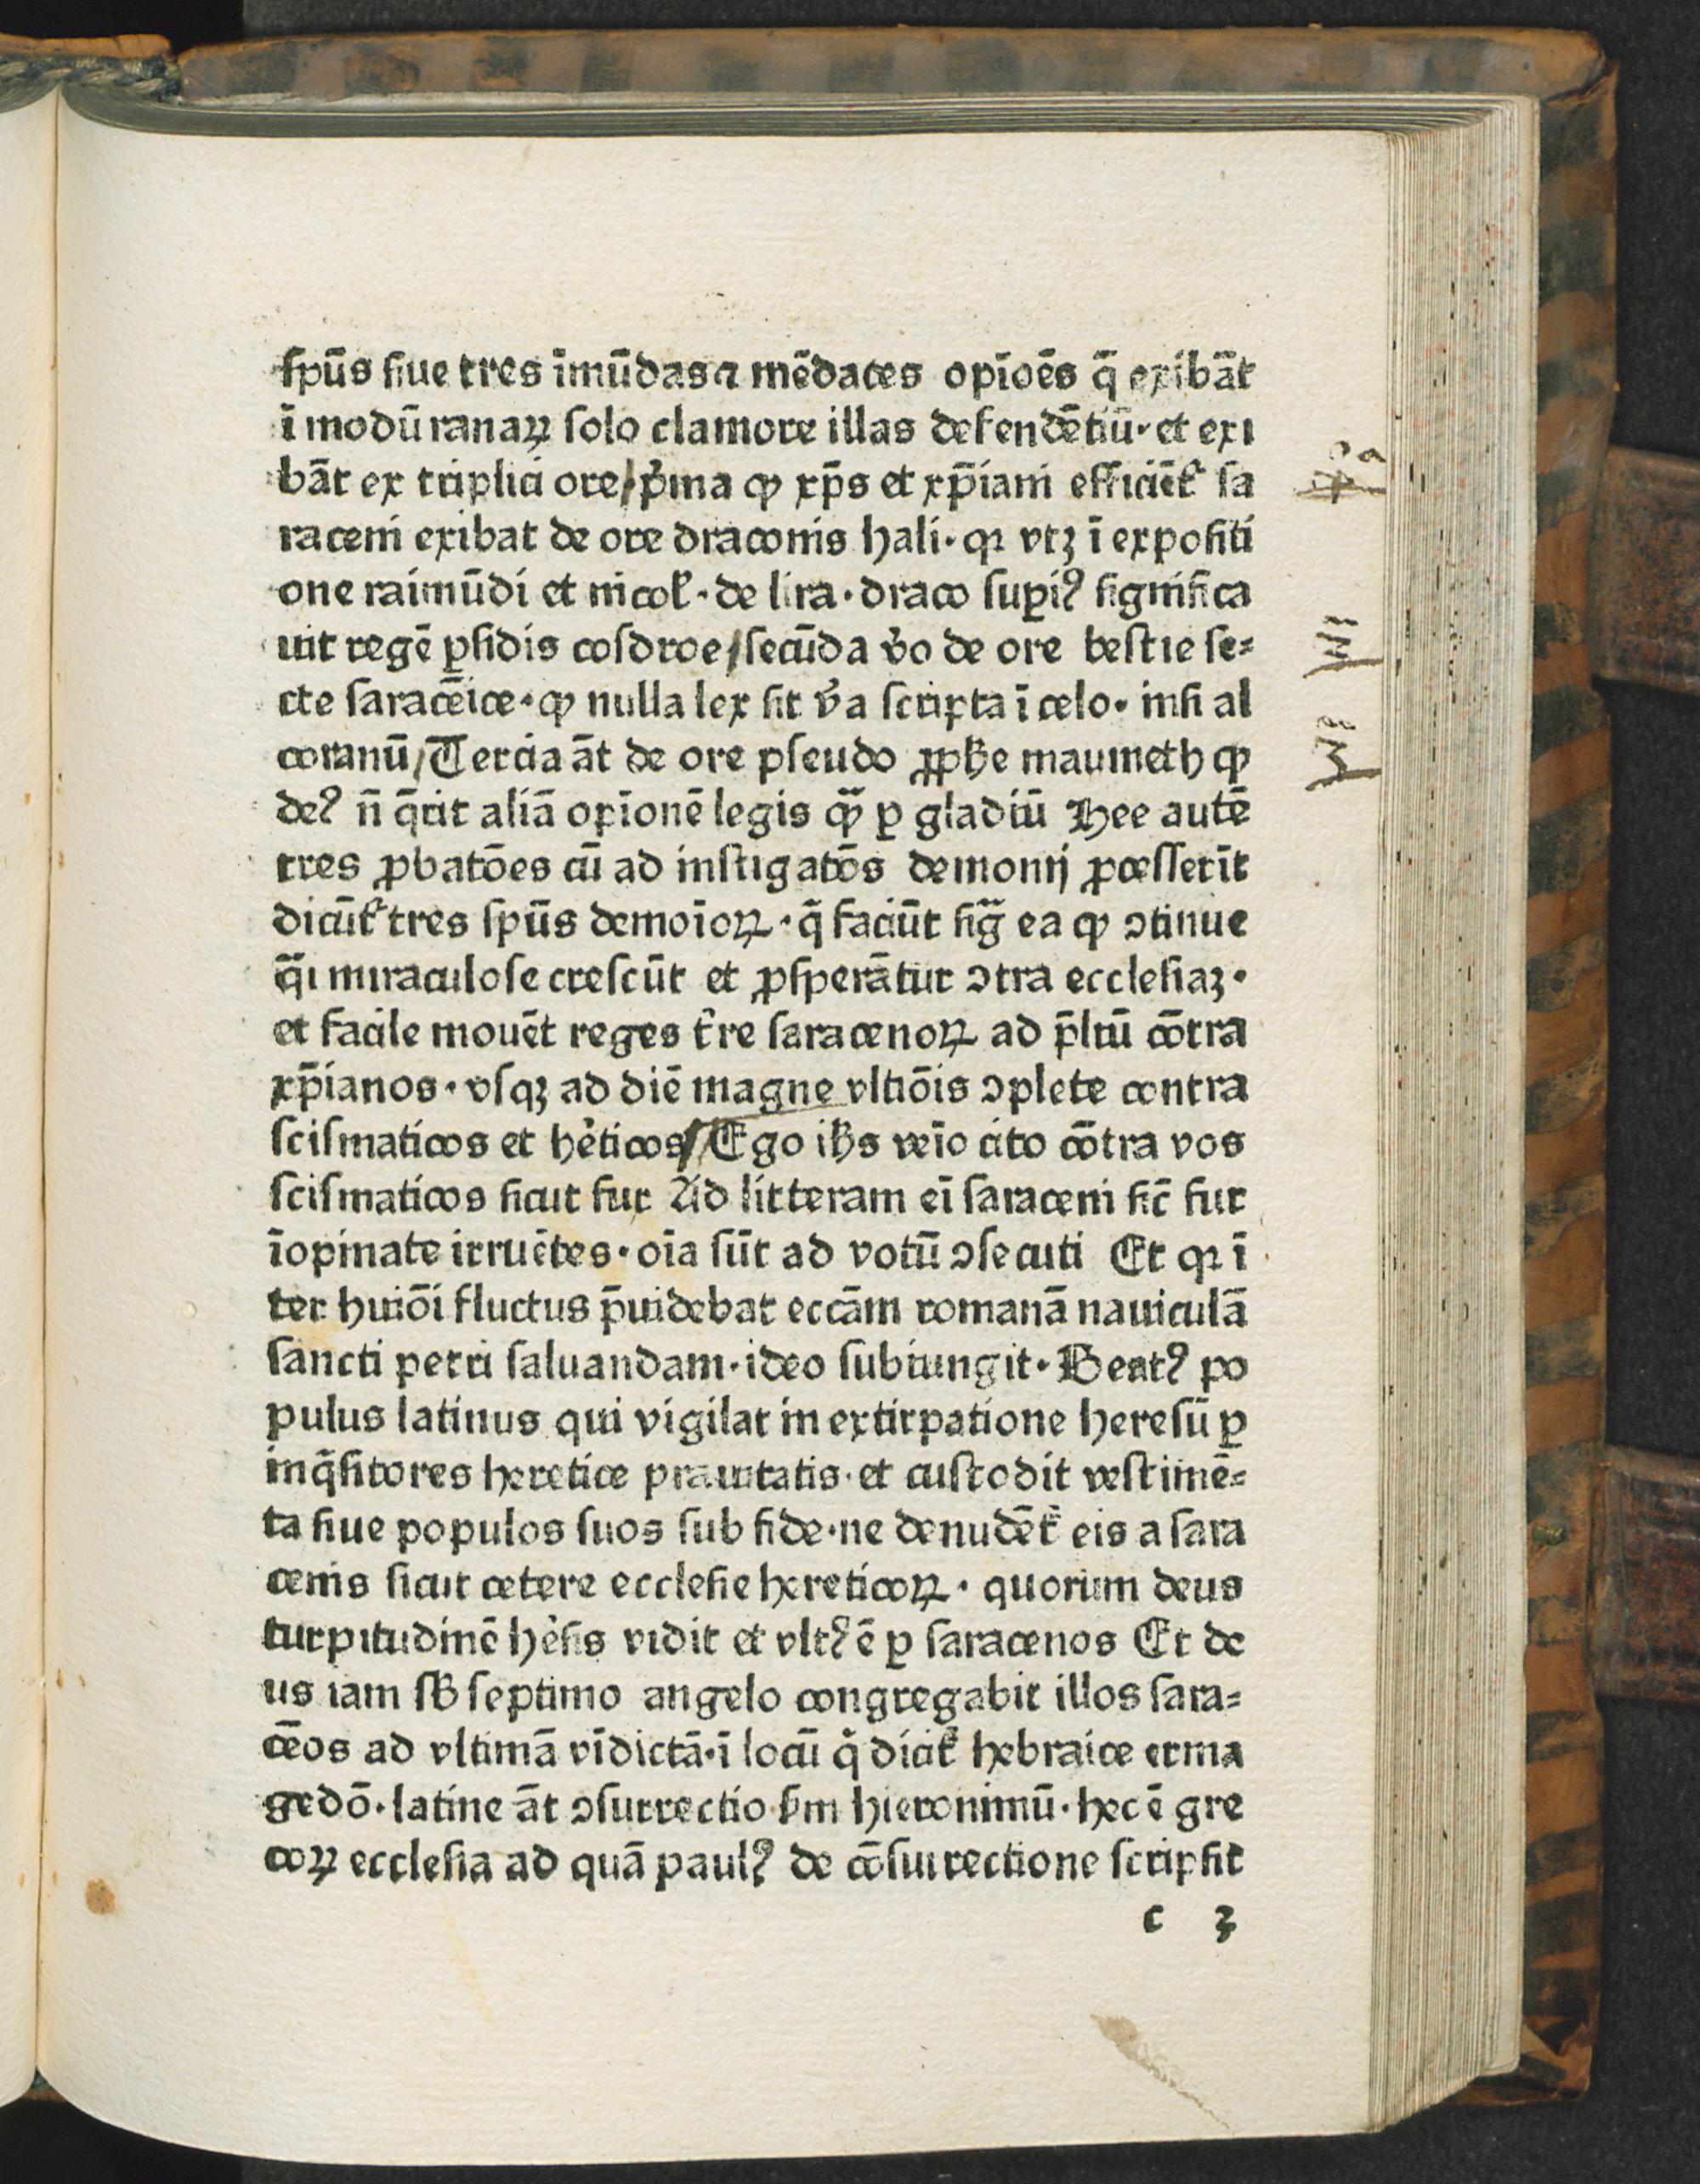 ſpūs ſiue tres īmūdas ⁊ mēdaces opīoēs q̄ exibāt
ī modū ranaꝝ ſolo clamore illas defendētiū· et exi
bāt ex triplici ore/ pͥma ꝙ xp̄s et xp̄iani efficiēt᷑ ſa
raceni exibat de ore draconis hali· qꝛ vtꝫ ī expoſiti
one raimūdi et nicol̕· de lira· draco ſuꝑiꝰ ſignifica
uit regē ꝑſidis coſdroe/ ſecūda v̓o de ore beſtie ſe⸗
cte ſaracēice· ꝙ nulla lex ſit v̓a ſcripta ī celo· niſi al
coranū/ Tercia āt de ore pſeudo ꝓpħe maumeth ꝙ
deꝰ n̄ q̄rit aliā opīonē legis qͣꝫ ꝑ gladiū Hee autē
tres ꝓbatōes cū ad inſtigatōs demonij ꝓceſſerīt
dicūt᷑ tres ſpūs demoīoꝝ· q̄ faciūt ſigͣ ea ꝙ ↄtinue
qͣſi miraculoſe creſcūt et ꝓſperātur ↄtra eccleſiaꝫ·
et facile mouēt reges t̓re ſaracenoꝝ ad p̄liū cōtra
xp̄ianos· vſqꝫ ad diē magne vltiōis ↄplete contra
ſciſmaticos et he̓ticos/ Ego ihs̄ veīo cito cōtra vos
ſciſmaticos ſicut fur Ad litteram eī ſaraceni ſic̄ fur
īopinate irruētes· oīa ſūt ad votū ↄſecuti Et qꝛ ī
ter huiōi fluctus p̄uidebat eccām romanā nauiculā
ſancti petri ſaluandam· ideo ſubiungit· Beatꝰ po
pulus latinus qui vigilat in extirpatione hereſū ꝑ
inq̄ſitores heretice prauitatis· et cuſtodit veſtimē⸗
ta ſiue populos ſuos ſub fide· ne denudēt᷑ eis a ſara
cenis ſicut cetere eccleſie hereticoꝝ· quorum deus
turpitudinē he̓ſis vidit et vltꝰ ē ꝑ ſaracenos Et de
us iam ſb̓ ſeptimo angelo congregabit illos ſara⸗
cēos ad vltimā vīdictā· ī locū q̄ dicit᷑ hebraice erma
gedō· latine āt ↄſurrectio ẜm hieronimū· hec ē gre
coꝝ eccleſia ad quā paulꝰ de cōſurrectione ſcripſit
c 3